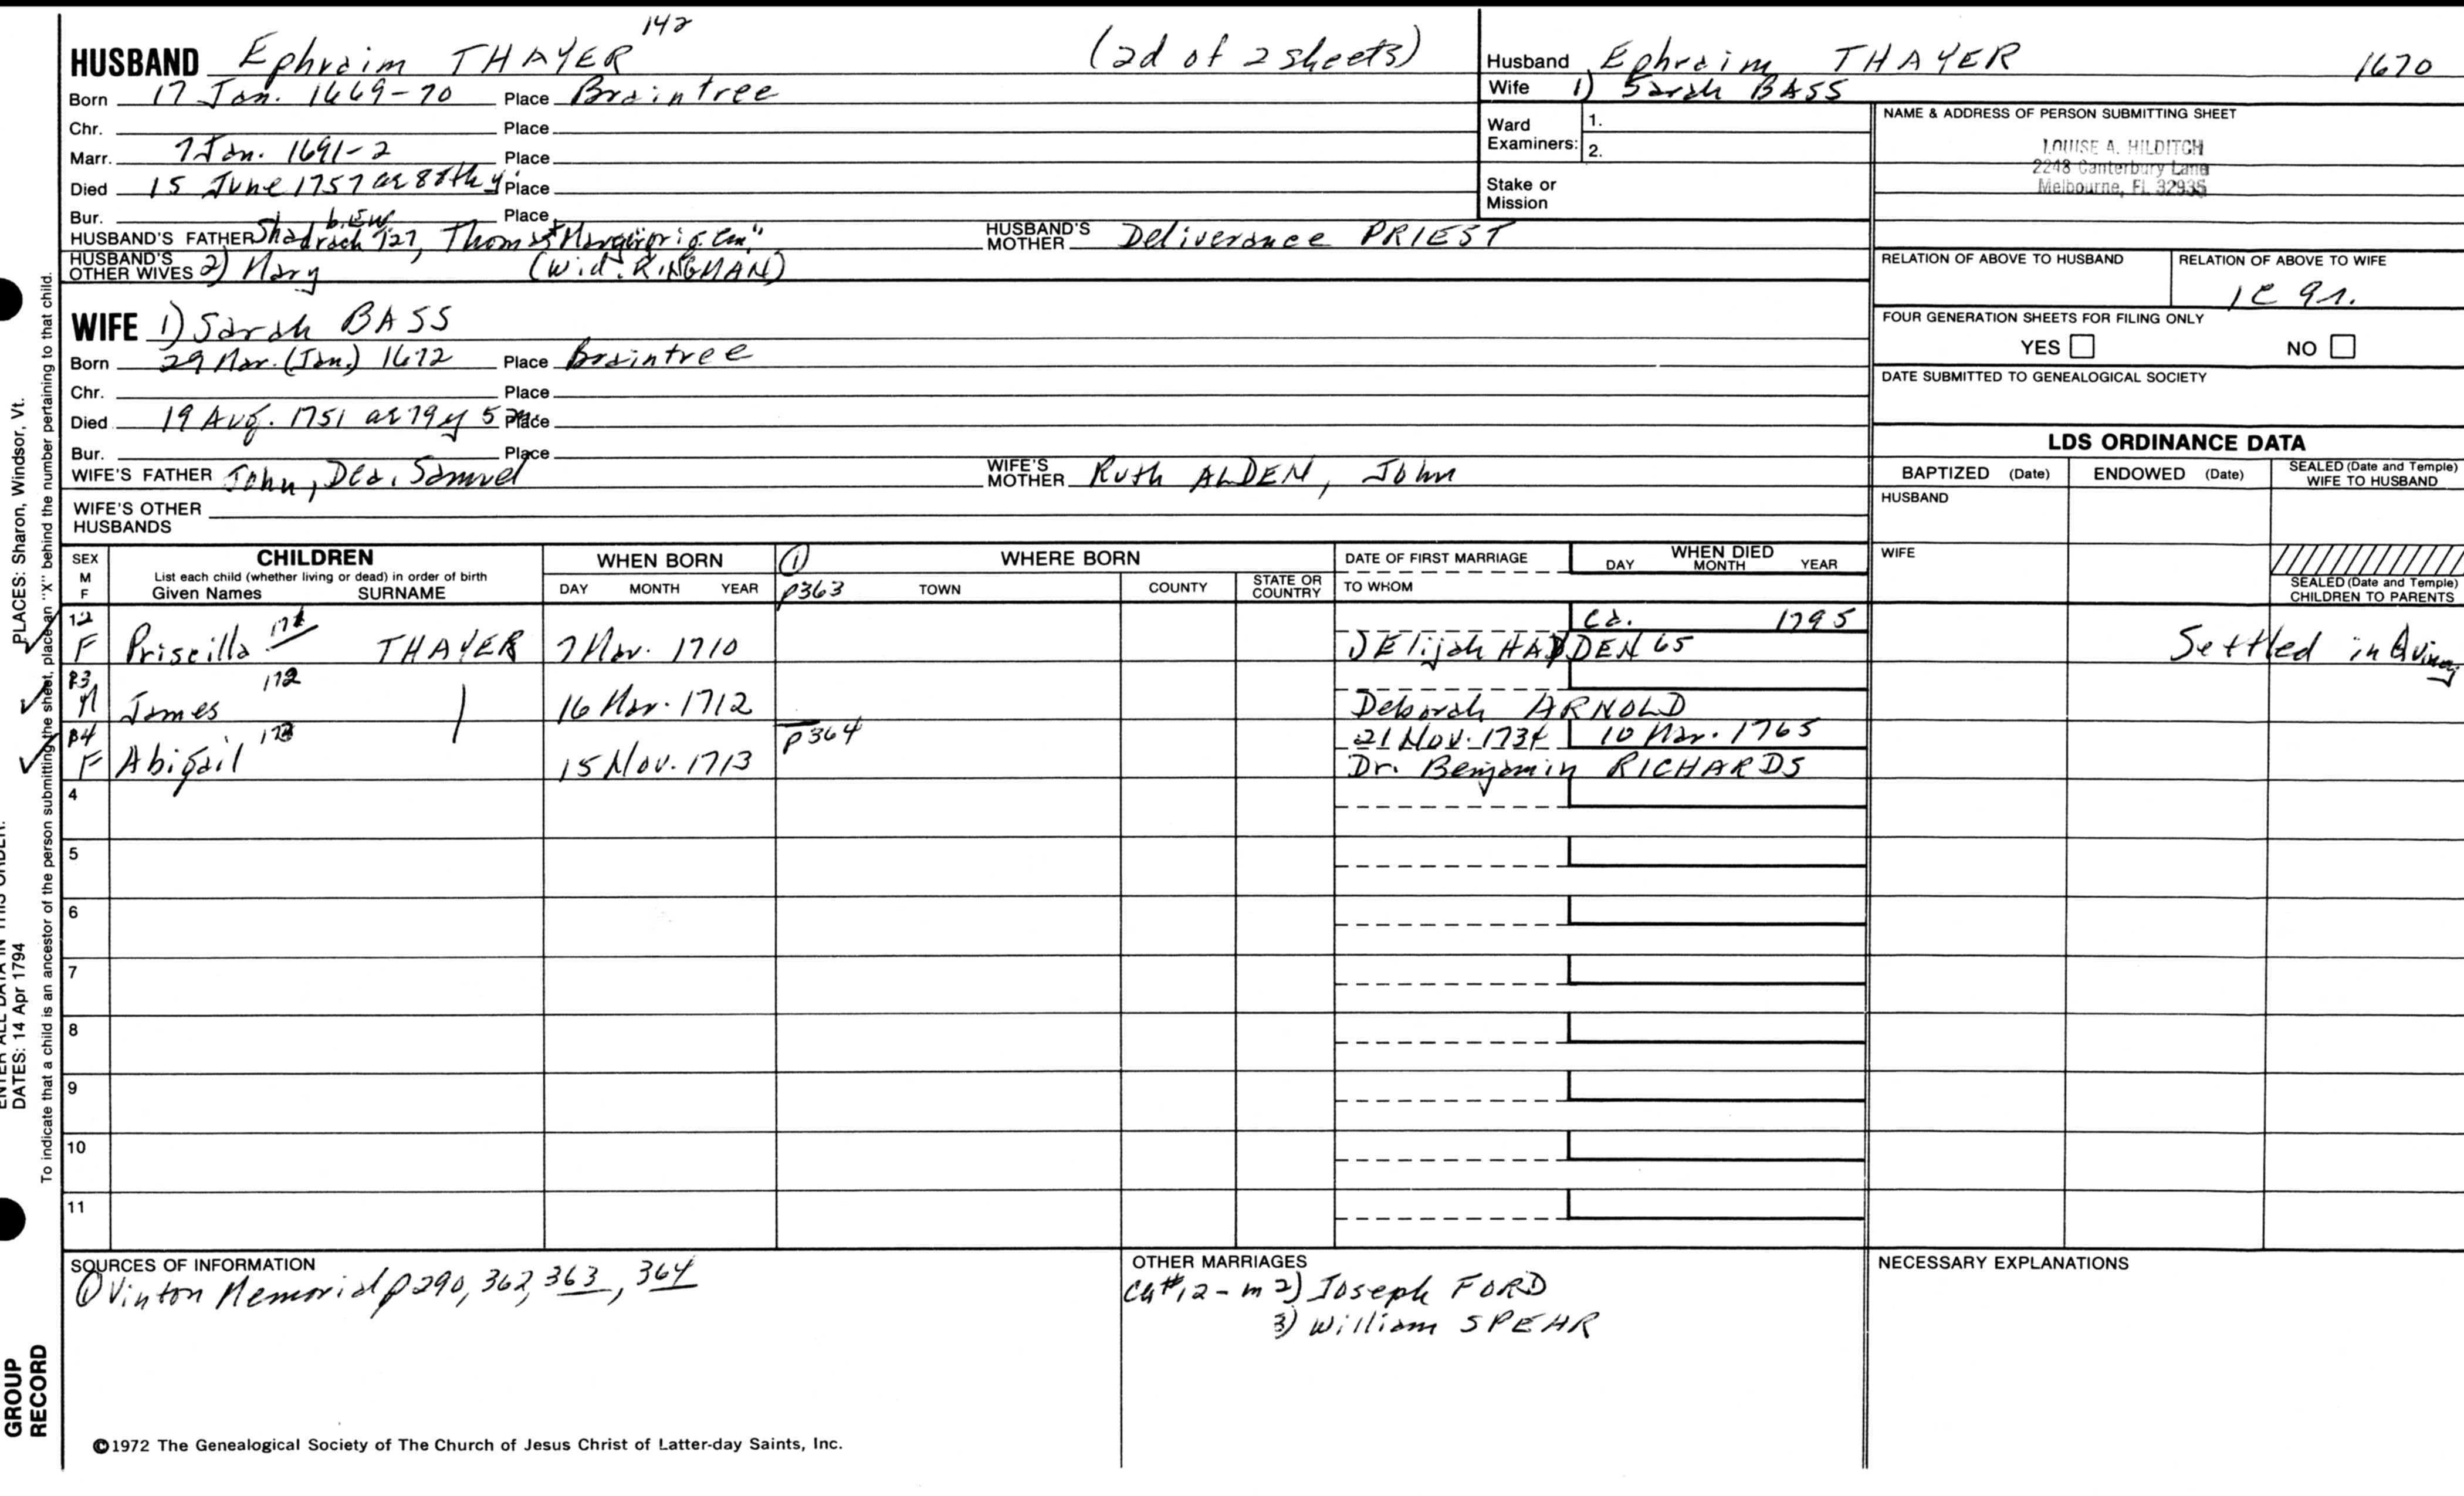 142
HUSBAND Ephraim THAYER (2d of 2 sheets)
Born 17 Jan. 1669-70 Place Braintree
Chr. Place
Marr. 7 Jan. 1691-2 Place
Died 15 June 1757 ae 88th y Place
Bur. Place
HUSBAND'S FATHER Shadrach 127, Thomas + Margerie HUSBAND'S MOTHER Deliverance PRIEST
HUSBAND'S OTHER WIVES 2) Mary (Wid. RINGMAN)
WIFE 1) Sarah BASS
Born 29 Mar. (Jan.) 1672 Place Braintree
Chr. Place
Died 19 Aug. 1751 ae 79 y 5 m Place
Bur. Place
WIFE'S FATHER John, Dea. Samuel WIFE'S MOTHER Ruth ALDEN, John
WIFE'S OTHER HUSBANDS
Husband Ephraim THAYER 1670
Wife 1) Sarah BASS
Ward Examiners: 1.
2.
Stake or Mission
NAME & ADDRESS OF PERSON SUBMITTING SHEET
LOUISE A. HILDITCH
2248 Canterbury Lane
Melbourne, FL 32935
RELATION OF ABOVE TO HUSBAND RELATION OF ABOVE TO WIFE
1C 9r.
FOUR GENERATION SHEETS FOR FILING ONLY
YES NO
DATE SUBMITTED TO GENEALOGICAL SOCIETY
LDS ORDINANCE DATA
BAPTIZED (Date) ENDOWED (Date) SEALED (Date and Temple) WIFE TO HUSBAND
HUSBAND
WIFE
SEALED (Date and Temple) CHILDREN TO PARENTS
SEX M F
CHILDREN
List each child (whether living or dead) in order of birth
Given Names SURNAME
WHEN BORN
DAY MONTH YEAR
1 WHERE BORN
p363 TOWN COUNTY STATE OR COUNTRY
DATE OF FIRST MARRIAGE
TO WHOM
WHEN DIED
DAY MONTH YEAR
12 171 ca. 1795
F Priscilla THAYER 7 Mar. 1710 1) Elijah HAYDEN 65 Settled in
13 172
M James 16 Mar. 1712 Deborah ARNOLD
14 173 p364 21 Nov. 1734 10 Mar. 1765
F Abigail 15 Nov. 1713 Dr. Benjamin RICHARDS
4
5
6
7
8
9
10
11
SOURCES OF INFORMATION
1 Vinton Memorial p290, 362, 363, 364
OTHER MARRIAGES
Ch #12 - m 2) Joseph FORD
3) William SPEAR
NECESSARY EXPLANATIONS
©1972 The Genealogical Society of The Church of Jesus Christ of Latter-day Saints, Inc.
PLACES: Sharon, Windsor, Vt.
ENTER ALL DATA IN THIS ORDER:
DATES: 14 Apr 1794
To indicate that a child is an ancestor of the person submitting the sheet, place an "X" behind the number pertaining to that child.
GROUP
RECORD